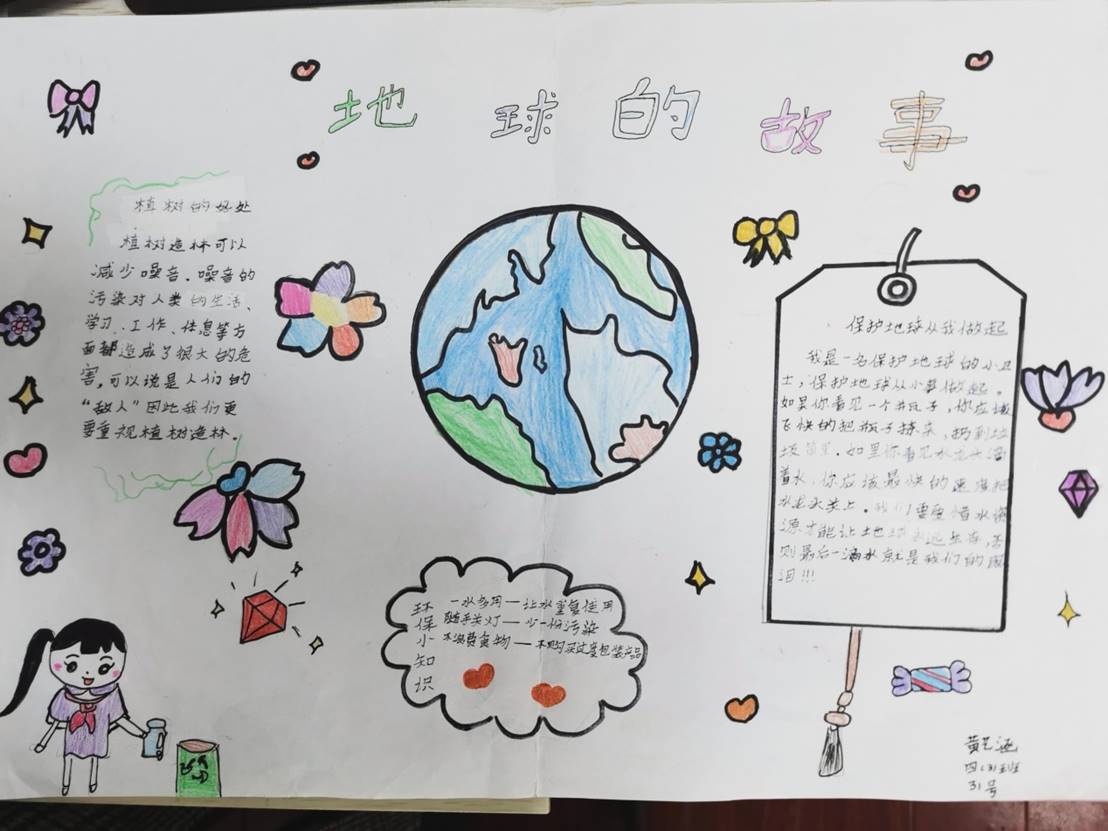 地球的故事
植树的好处
植树造林可以
减少噪音.噪音的
污染对人类的生活、
学习、工作、休息等方
面都造成了很大的危
害,可以说是人们的
“敌人”因此我们更
要重视植树造林.
环保小知识
一水多用——让水重复使用
随手关灯——少一份污染
不浪费食物——不购买过度包装产品
保护地球从我做起
我是一名保护地球的小卫
士,保护地球从小事做起。
如果你看见一个瓶子,你应该
飞快的把瓶子捡来,扔到垃
圾筒里.如果你看见水龙头
着水,你应该最快的速度把
水龙头关上.我们要爱惜水
源才能让地球永远生存,否
则最后一滴水就是我们的眼
泪!!!
四
31号